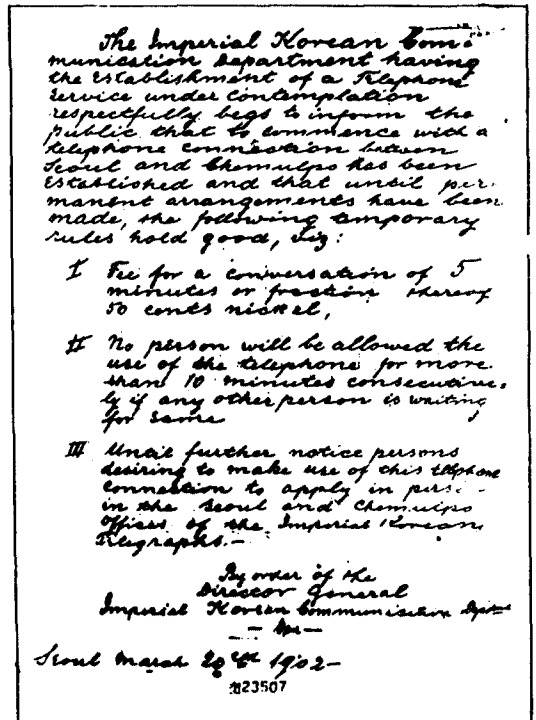 The Imperial Korean Com-
munication Department having
the Establishment of a Telephone
Service under Contemplation
respectfully begs to inform the
Public that to commence with a
telephone connection between
Seoul and Chemulpo has been
Established and that until per-
manent arrangements have been
made, the following temporary
rules hold good, viz:
I Fee for a conversation of 5
minutes or fraction thereof
50 cents nickel,
II No person will be allowed the
use of the telephone for more
than 10 minutes consecutive-
ly if any other person is waiting
for same
III Until further notice persons
desiring to make use of this telephone
connection to apply in
in the Seoul and Chemulpo
Offices of the Imperial Korean
Telegraphs.—
By order of the
Director General
Imperial Korean Communication
Seoul March 1902—
23507